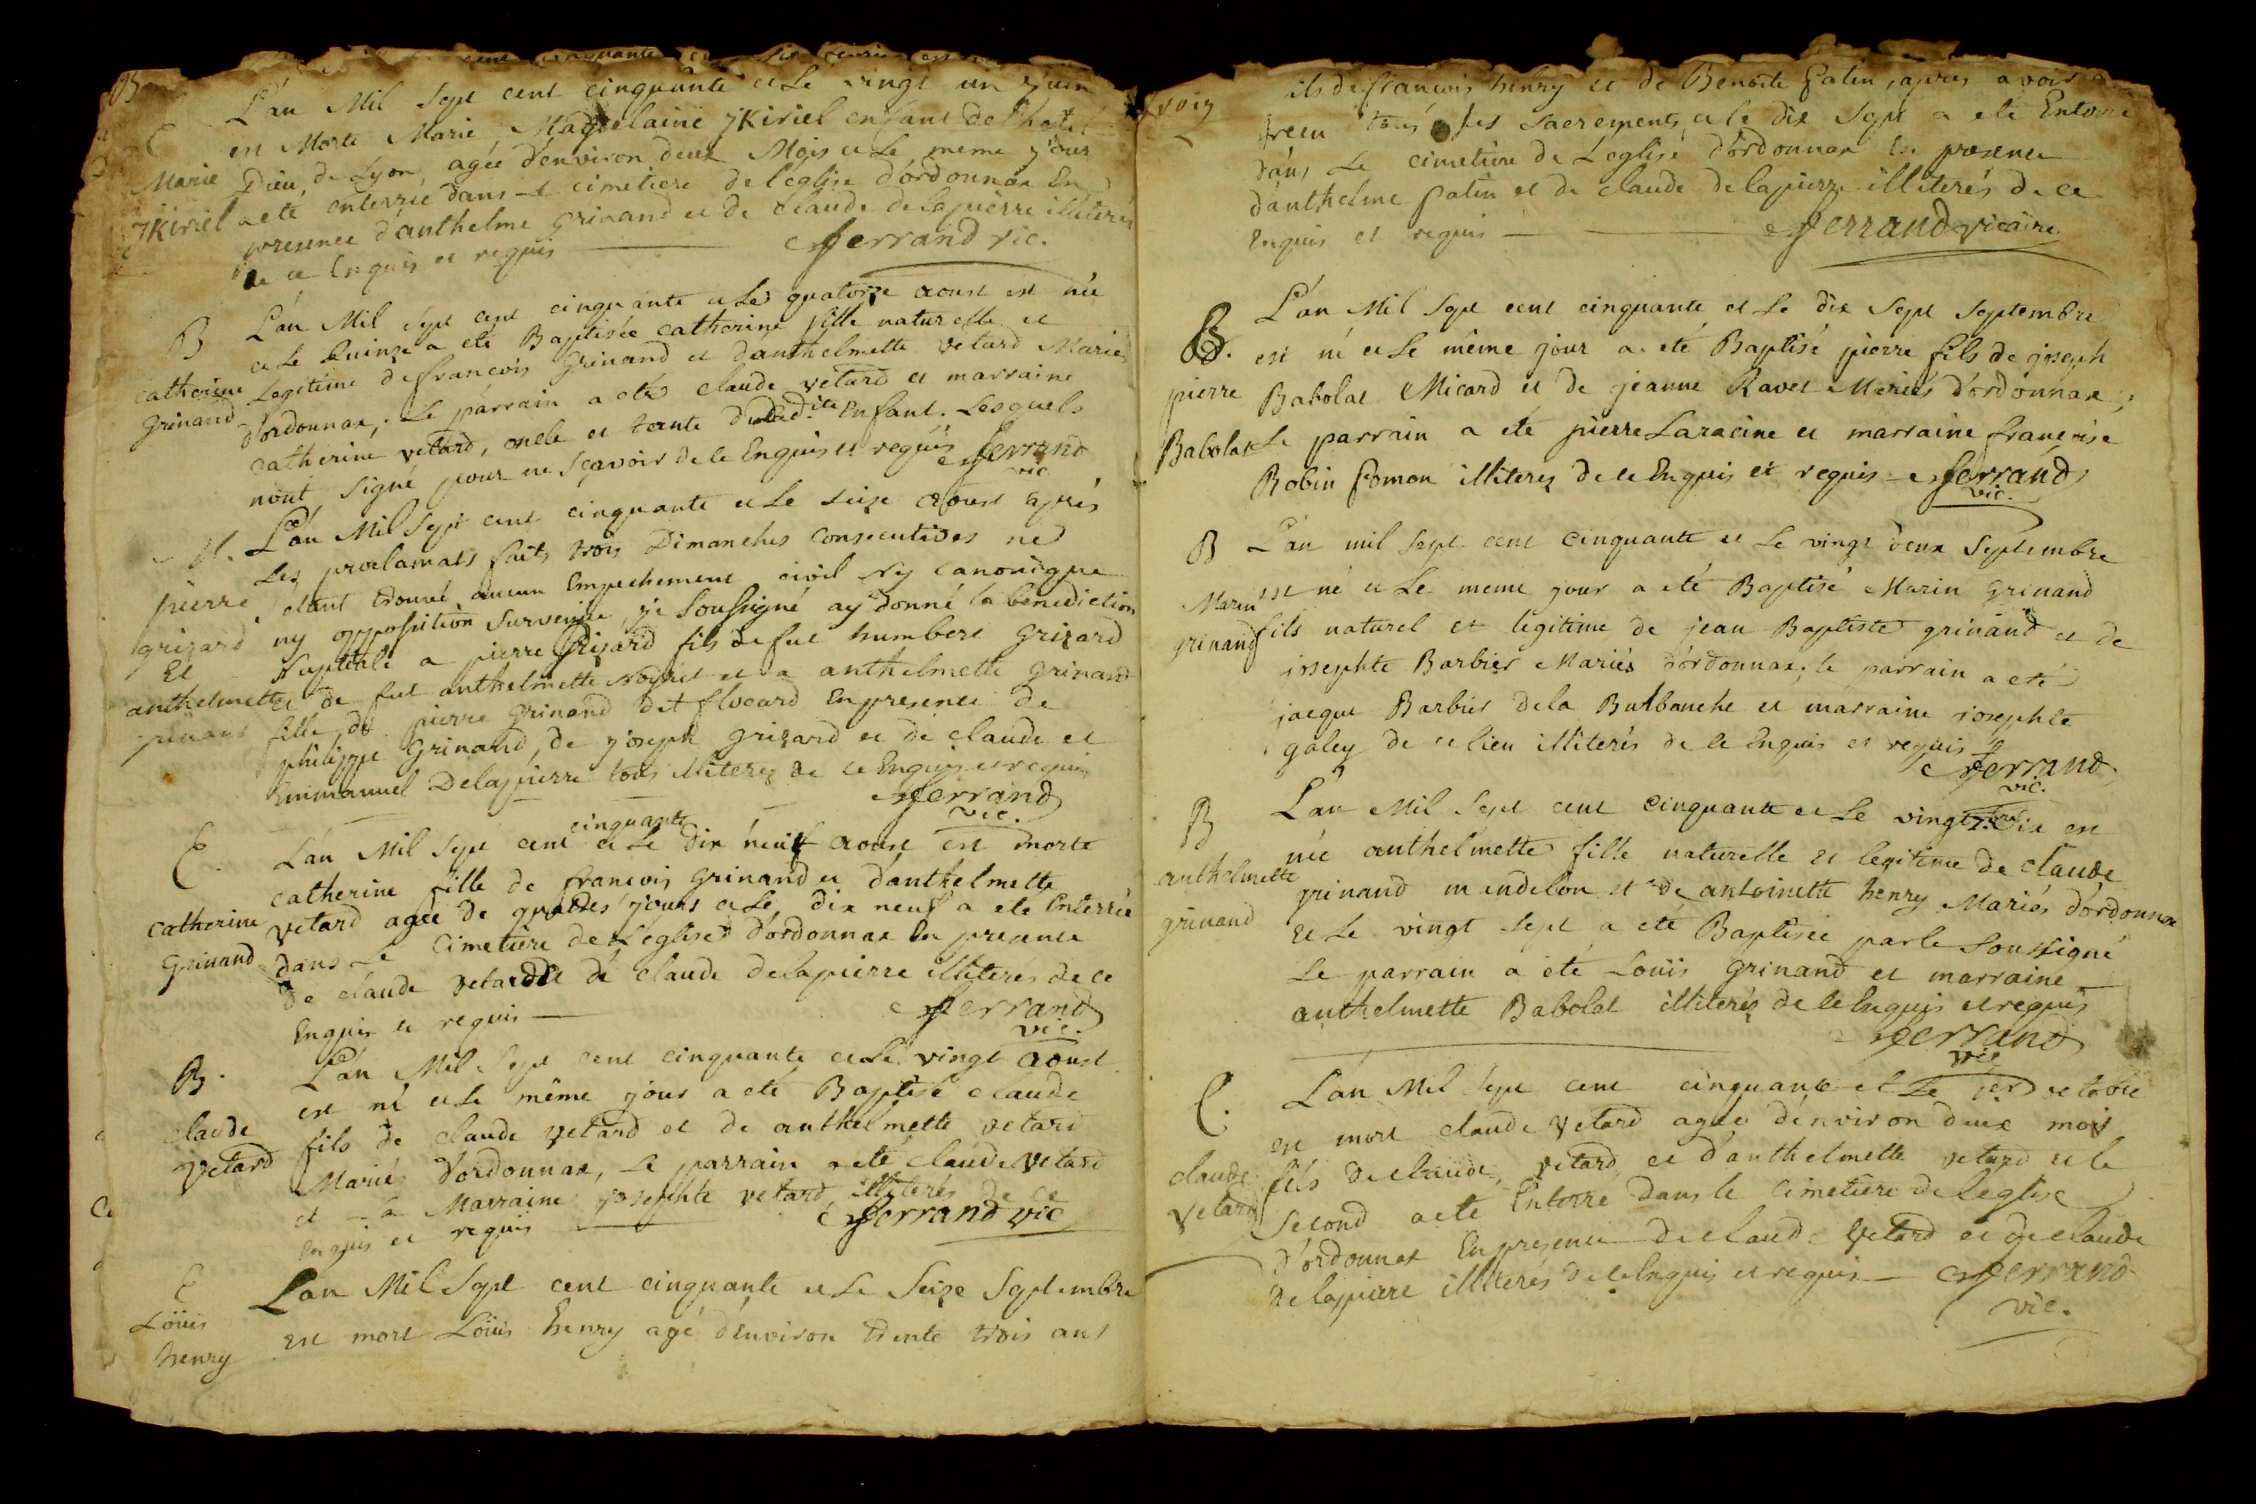 cent cinquante
B
L'an Mil sept cent cinquante et le vingt un juin
E
est Morte Marie Magdelaine jKiriel enfant de l'hotel
Marie
Dieu de Lyon, agée d'environ deux Mois et le meme jour
jKiriel
a eté enterrée dans le cimetiere de l'eglise d'ordonnax En
presence d'anthelme grinand et de claude delapierre illiterés
de ce Enquis et requis ferrand vic.
B
L'an Mil sept cent cinquante et le quatorze aoust est née
et le quinze a eté Baptisée catherine fille naturelle et
catherine
Legitime de francois grinand et d'anthelmette vetard Mariés
grinand
d'ordonnax, Le parrain a eté claude vetard et marraine
catherine vetard, oncle et tante dudit Enfant. Lesquels
n'ont signé pour ne sçavoir de ce Enquis et requis ferrand
vic
M.
L'an Mil sept cent cinquante et le seize aoust après
Les proclamats faits trois Dimanches consecutives ne
pierre
etant trouvé aucun Empechement civil ny canonique
grizard
ny opposition survenüe, je soussigné ay donné la benediction
Et
Nuptiale a pierre grizard fils de fut humbert grizard
anthelmette
et de fut anthelmette et a anthelmette grinand
grinand
fille de pierre grinand dit flocard En presence de
philippe grinand, de joseph grizard et de claude et
Emmanuel Delapierre tous illiterés de ce Enquis et requis
ferrand
vic.
E.
cinquante
L'an Mil sept cent et le dix neuf aoust est morte
catherine fille de francois grinand et d'anthelmette
catherine
vetard agée de quatres jours et le dix neuf a eté Enterrée
grinand
dans Le cimetière de L'eglise d'ordonnax En presence
de claude vetard et de claude delapierre illiteres de ce
Enquis et requis ferrand
vic.
B.
L'an Mil sept cent cinquante et le vingt aoust
est né et le même jour a eté Baptisé claude
claude
fils de claude vetard et de anthelmette vetard
vetard
Mariés d'ordonnax, Le parrain a eté claude vetard
et la Marraine josephte vetard, illiterés de ce
Enquis et requis ferrand vic
E
L'an Mil sept cent cinquante et le seize septembre
Loüis
henry
est mort Loüis henry agé d'environ trente trois ans
voiy
ils de francois henry et de Benoite patin, après avoir
receu tous les sacrements et le dix sept a eté Enterré
dans Le cimetière de L'eglise d'ordonnax En presence
d'anthelme patin et de claude delapierre illiterés de ce
Enquis et requis ferrand vicaire
B.
L'an Mil sept cent cinquante et le dix sept septembre
est né et le même jour a eté Baptisé pierre fils de joseph
pierre
Babolat Micard et de jeanne Ravet Mariés d'ordonnax;
Babolat
Le parrain a eté pierre Laracine et marraine francoise
Robin fomon illiterés de ce Enquis et requis ferrand
vic.
B
L'an mil sept cent cinquante et le vingt deux septembre
Marin
est né et le meme jour a eté Baptisé Marin grinand
grinand
fils naturel et legitime de jean Baptiste grinand et de
josephte Barbier Mariés d'ordonnax; le parrain a eté
jacque Barbier de la Burbanche et marraine josephte
galey de ce lieu illiterés de ce Enquis et requis
ferrand
vic.
B
L'an Mil sept cent cinquante et le vingt six est
née anthelmette fille naturelle et legitime de claude
anthelmette
grinand mendelon et de antoinette henry Mariés d'ordonnax
grinand
et le vingt sept a eté Baptisée par le soussigné
Le parrain a eté Louïs grinand et marraine
anthelmette Babolat illiterés de ce Enquis et requis
ferrand
vic
E.
L'an Mil sept cent cinquante et le 1er octobre
est mort claude vetard agée d'environ deux mois
claude
fils de claude vetard et d'anthelmette vetard et le
vetard
second a eté Enterré dans le cimetière de l'eglise
d'ordonnax En presence de claude vetard et de claude
delapierre illiterés de ce Enquis et requis ferrand
vic.